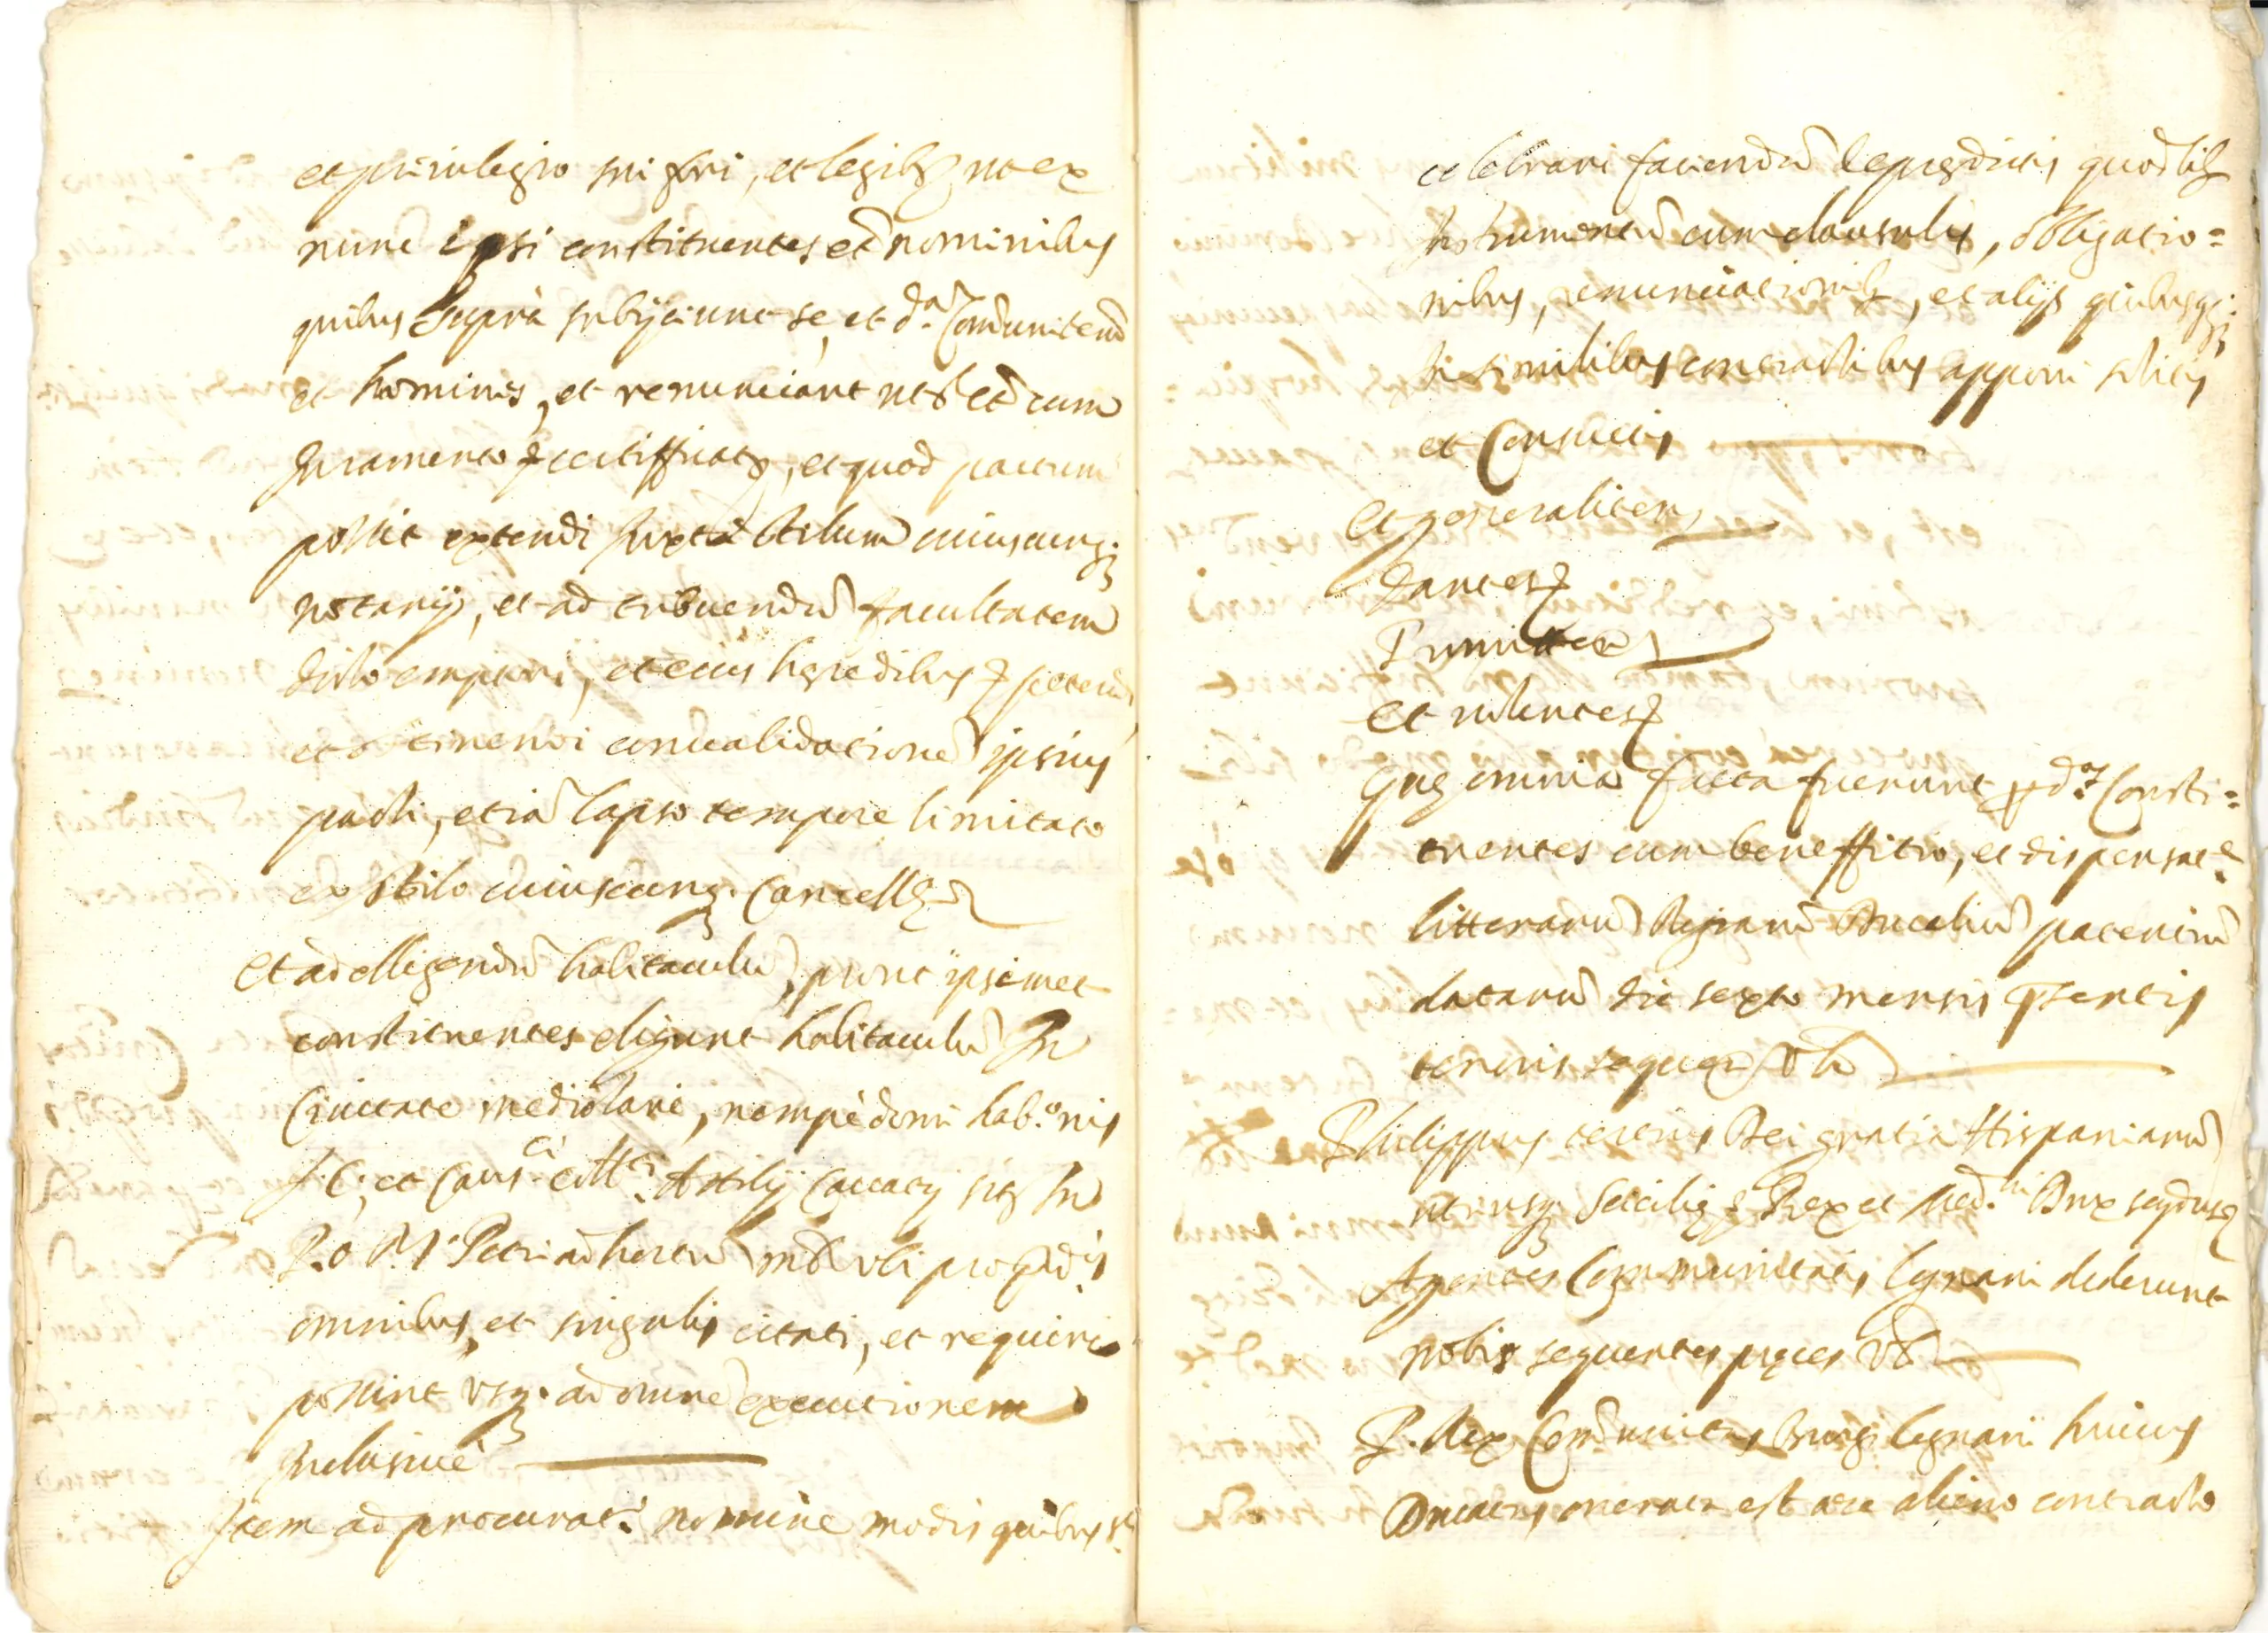 et privilegio sui fori, et legibus ut ex
nunc ipsi constituentes et nominibus
quibus supra subijciunt se, et d.am Comunitem
et homines, et renunciant ut et cum
Juramento certifficat, et quod pactum
possit extendi Juxta stilum cuiuscunq.
notarij, et ad tribuendu facultatem
dicto emptori, et eius heredibus petendi
et obtinendi convalidatione ipsius
pacti, etia lapso tempore limitato
ex stilo cuiuscunq. Cancell
Et ad elligendu habitaculu, prout ipsimet
constituentes eligunt habitaculu In
Civitate mediolani, nempè domi hab.nis
J.C. et Caus.ci coll.ti Attilij sit In
P.O. P.S. Petri ad hortu ubi pro pd.is
omnibus, et singulis citari, et requiri
possint usq. ad omne executionem
Inclusiuè
Item ad procurat. nomine modis quibus s.
celebrari faciendu de pregdictis quodlibet
Instrumentu cum clausulis, obligatio=
nibus, renunciationib, et alijs quibusq.
In similibus contractibus apponi solitis
et Consuetis
Et generaliter
Dantes
Promitten
Et volentes
Que omnia facta fuerunt p d.os Consti=
tuentes cum beneffitio, et dispensat.e
litterarum Regiarū Ducaliū patentiū
datarū die sexto mensis pntis
tenoris sequen
Philippus tertius Dei gratia Hispaniarū
utriusq. Sicilie Rex et Med.ni Dux
Agentes Communitatis legnani dederunt
nobis sequentes preces
P. Rex Comunitas Burgi legnani huius
Ducatus onerata est ere alieno contracto